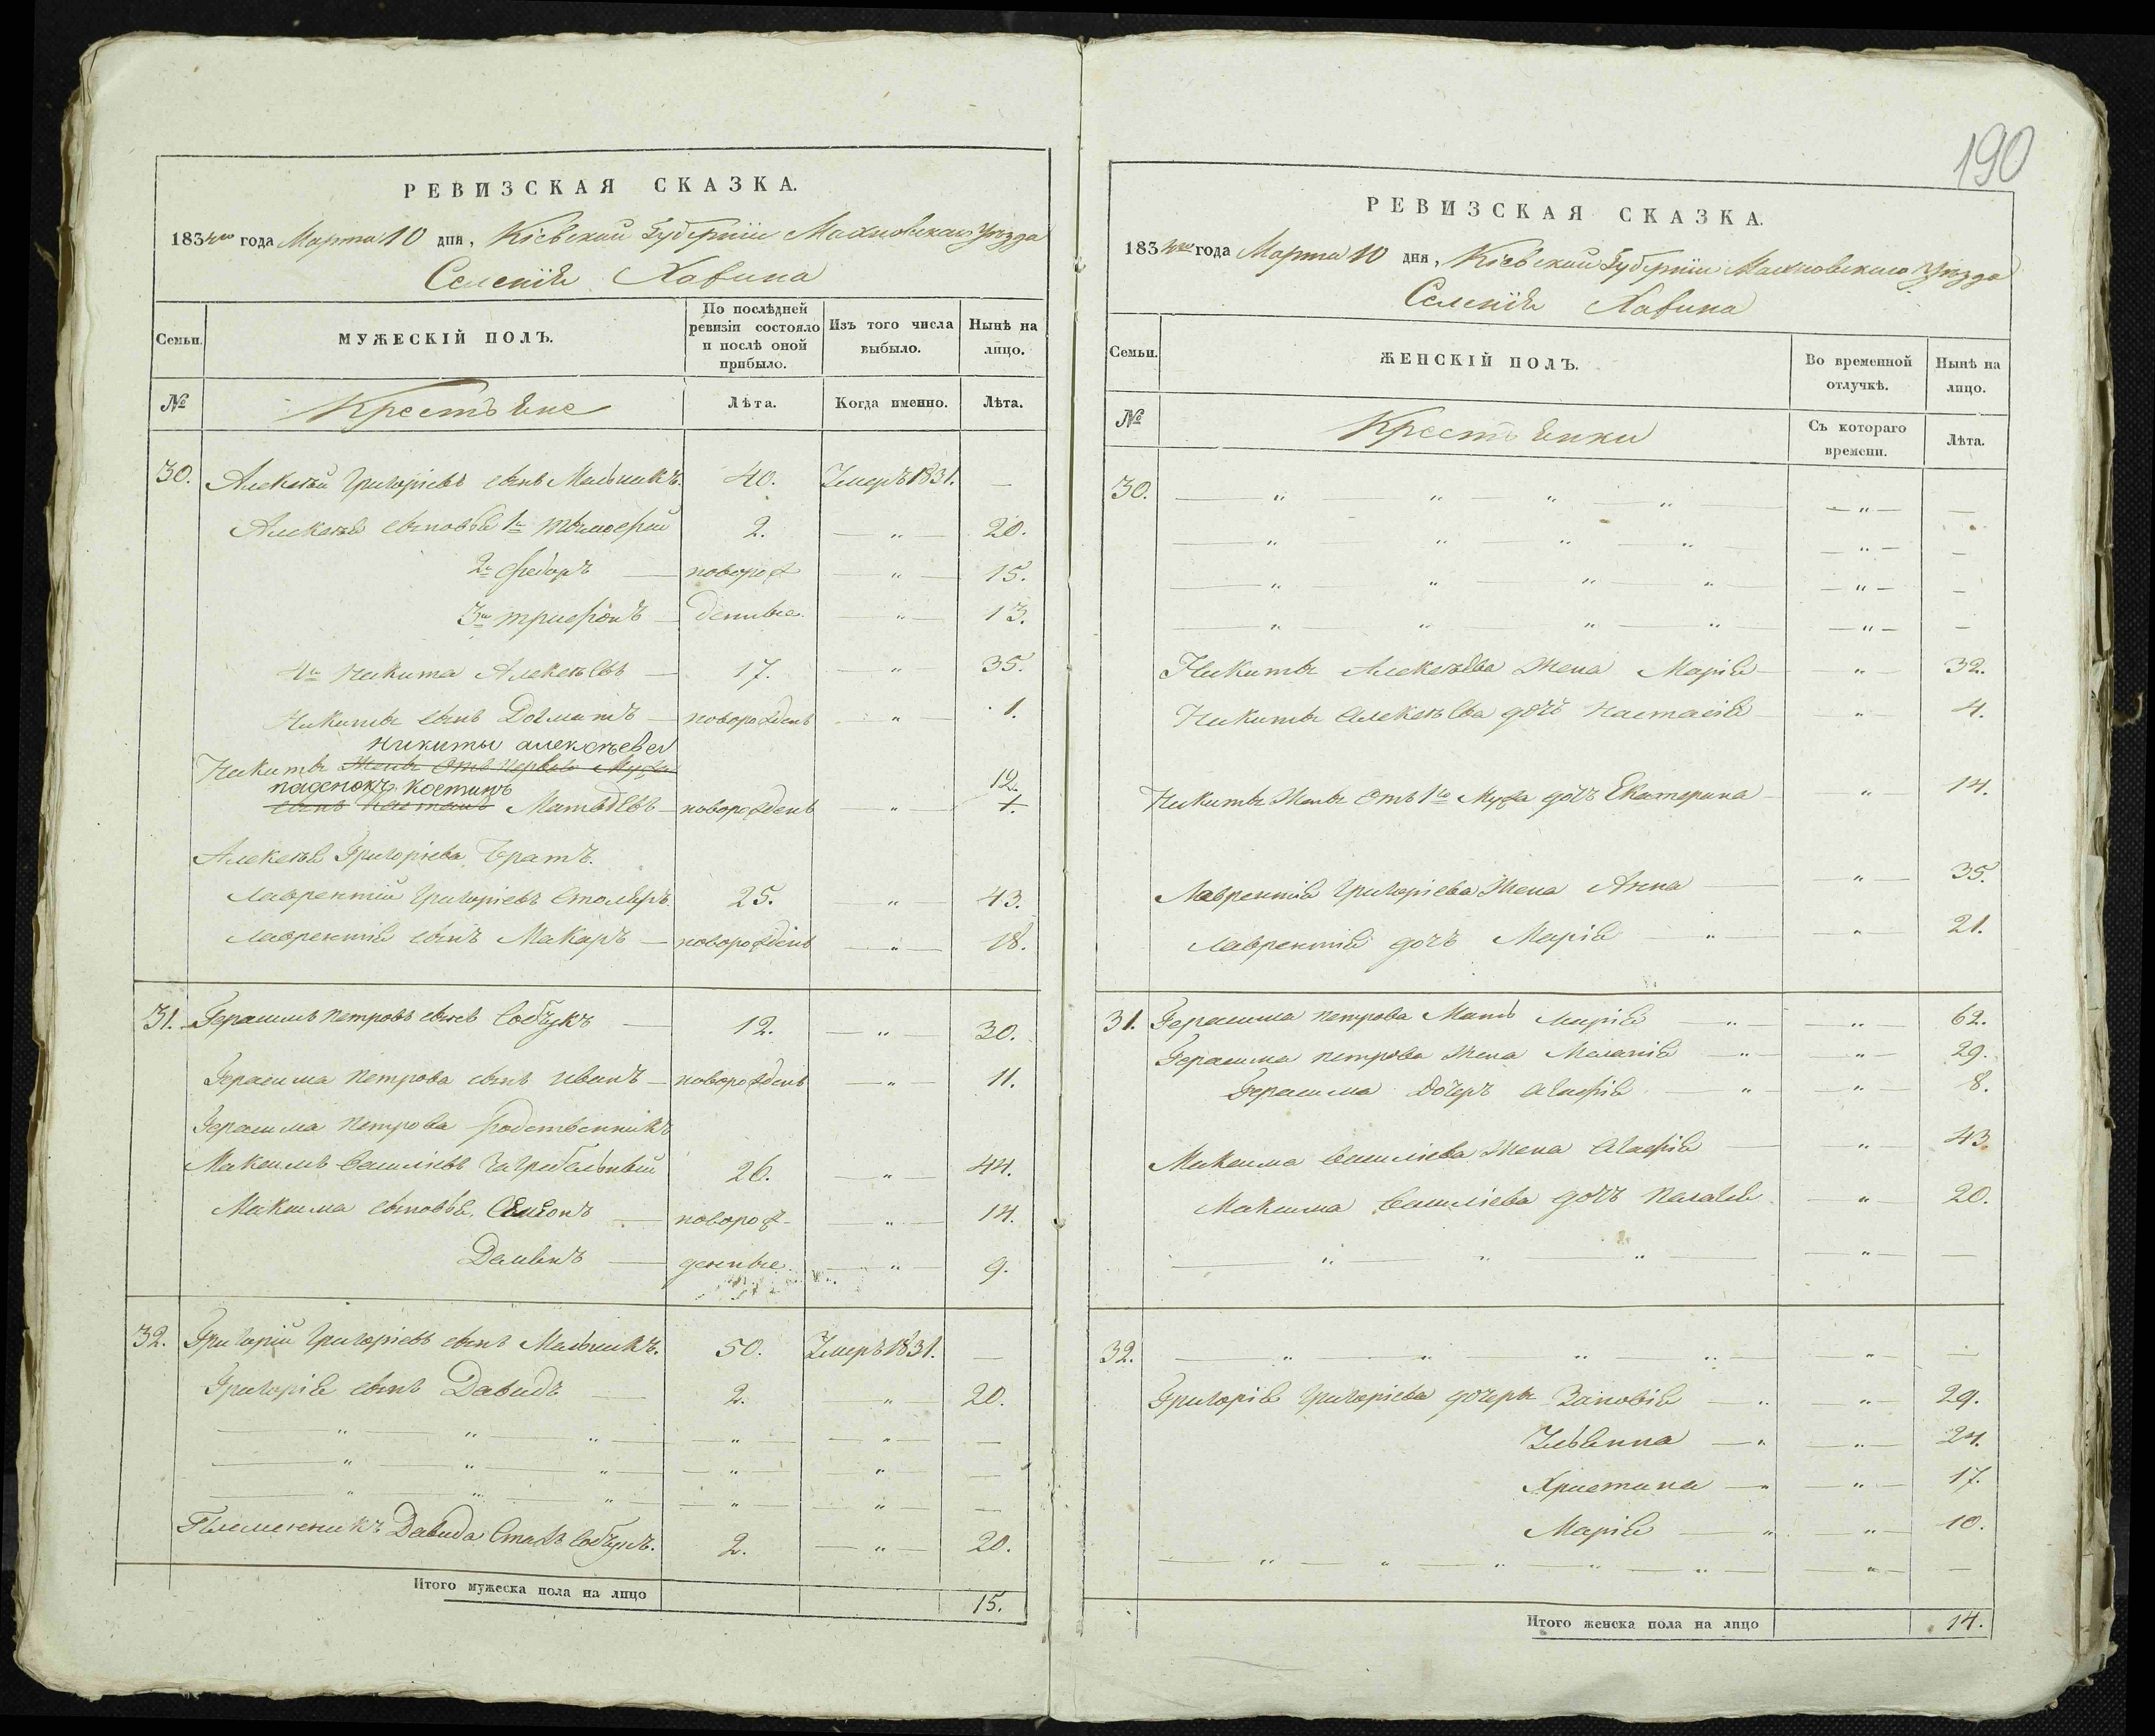 190
РЕВИЗСКАЯ СКАЗКА.
1834го года Марта 10 дня, Кіевской Губерніи Махновскаго Уѣзда
Селенія Хавина
Семьи. МУЖЕСКІЙ ПОЛЪ. По послѣдней ревизіи состояло и послѣ оной прибыло. Изъ того числа выбыло. Нынѣ на лицо.
№ Крестьяне Лѣта. Когда именно. Лѣта.
30. Алексѣй Григоріевъ сынъ Мельникъ. 40. Умеръ 1831. —
Алексѣя сыновья 1й Тимофей 2. — " — 20.
2й Федоръ — новорож — " — 15.
3й Трифонъ — денные. — " — 13.
4й Никита Алексѣевъ — 17. — " — 35.
Никиты сынъ Долматъ — новорожденъ — " — 1.
Никиты алексѣева
Никиты жены отъ перваго мужа
пасенокъ костинъ 12.
сынъ Матвѣевъ — новорожденъ — " —
Алексѣя Григоріева Братъ.
Лаврентій Григоріевъ Столяръ. 25. — " — 43.
Лаврентія сынъ Макаръ — новорожденъ — " — 18.
31. Герасимъ Петровъ сынъ Собчукъ — 12. — " — 30.
Герасима Петрова сынъ Иванъ — новорожденъ — " — 11.
Герасима Петрова родственникъ
Максимъ Василіевъ 26. — " — 44.
Максима сыновья, Семіонъ — новорож — " — 14.
Демянъ — денные. — " — 9.
32. Григорій Григоріевъ сынъ Мельникъ. 50. Умеръ 1831. —
Григорія сынъ Давидъ — 2. — " — 20.
— " — " — " — — " — — " — —
— " — " — " — — " — — " — —
— " — " — " — — " — — " — —
Племенникъ Давида 2. — " — 20.
Итого мужеска пола на лицо 15.
РЕВИЗСКАЯ СКАЗКА.
1834го года Марта 10 дня, Кіевской Губерніи Махновскаго Уѣзда
Селенія Хавина
Семьи. ЖЕНСКІЙ ПОЛЪ. Во временной отлучкѣ. Нынѣ на лицо.
№ Крестьянки Съ котораго времени. Лѣта.
30. — " — " — " — " — — " — —
— " — " — " — " — — " — —
— " — " — " — " — — " — —
— " — " — " — " — — " — —
Никиты Алексѣева жена Марія — " — 32.
Никиты Алексѣева дочъ Настасія — " — 4.
Никиты жены отъ 1го мужа дочъ Екатерина — " — 14.
Лаврентія Григоріева жена Анна — " — 35.
Лаврентія дочъ Марія — " — — " — 21.
31. Герасима Петрова Мать Марія — " — — " — 62.
Герасима Петрова жена Меланія " — — " — 29.
Герасима Дочеръ Агафія — " — — " — 8.
Максима Василіева жена Агафія — " — 43.
Максима Василіева дочъ Палагея — " — 20.
— " — " — " — — " — —
32. — " — " — " — " — — " — —
Григорія Григоріева дочери Зиновія — " — — " — 29.
Ульянна — " — " — 24.
Христина — " — " — 17.
Марія — " — " — 10.
— " — " — " — " — " — — " — —
Итого женска пола на лицо 14.